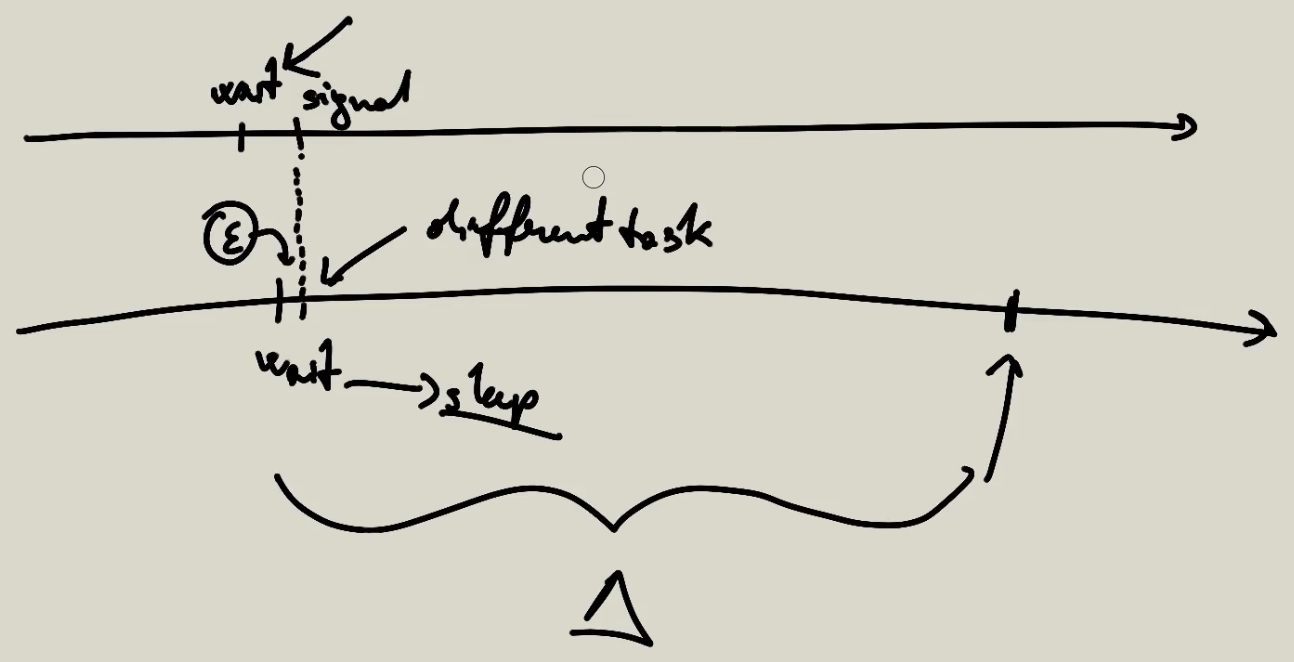 wait signal
ε
different task
wait → sleep
Δ